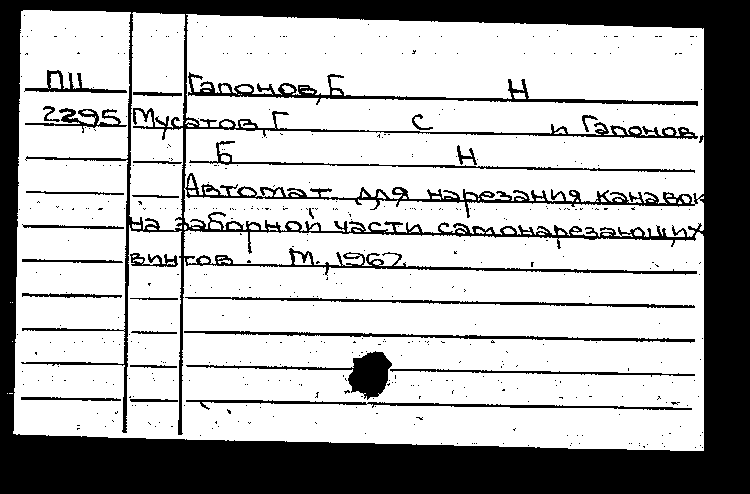 П11 Гапонов, Б Н
2295 Мусатов, Г С и Гапонов,
Б Н
Автомат для нарезания канавок
на заборной части самонарезающих
винтов. М., 1967.